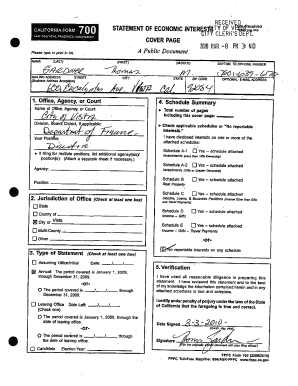 CALIFORNIA FORM 700
FAIR POLITICAL PRACTICES COMMISSION
STATEMENT OF ECONOMIC INTERESTS
RECEIVED
CITY OF VISTA
CITY CLERK'S DEPT.
COVER PAGE
2010 MAR -8 P 3:40
Please type or print in ink.
A Public Document
NAME (LAST) (FIRST) (MIDDLE) DAYTIME TELEPHONE NUMBER
GARDNER Thomas M.
MAILING ADDRESS STREET CITY STATE ZIP CODE OPTIONAL: E-MAIL ADDRESS
(Business Address Acceptable)
600 Eucalyptus Ave. Vista Cal 92084
1. Office, Agency, or Court
Name of Office, Agency, or Court:
City of Vista
Division, Board, District, if applicable:
Department of Finance
Your Position:
Director
If filing for multiple positions, list additional agency(ies)/
position(s): (Attach a separate sheet if necessary.)
Agency:
Position:
2. Jurisdiction of Office (Check at least one box)
State
County of
City of Vista
Multi-County
Other
3. Type of Statement (Check at least one box)
Assuming Office/Initial Date:
Annual: The period covered is January 1, 2009,
through December 31, 2009.
-or-
The period covered is through
December 31, 2009.
Leaving Office Date Left:
(Check one)
The period covered is January 1, 2009, through
the date of leaving office.
-or-
The period covered is through
the date of leaving office.
Candidate Election Year:
4. Schedule Summary
Total number of pages
including this cover page:
Check applicable schedules or "No reportable
interests."
I have disclosed interests on one or more of the
attached schedules:
Schedule A-1 Yes – schedule attached
Investments (Less than 10% Ownership)
Schedule A-2 Yes – schedule attached
Investments (10% or Greater Ownership)
Schedule B Yes – schedule attached
Real Property
Schedule C Yes – schedule attached
Income, Loans, & Business Positions (Income Other than Gifts
and Travel Payments)
Schedule D Yes – schedule attached
Income – Gifts
Schedule E Yes – schedule attached
Income – Gifts – Travel Payments
-or-
No reportable interests on any schedule
5. Verification
I have used all reasonable diligence in preparing this
statement. I have reviewed this statement and to the best
of my knowledge the information contained herein and in any
attached schedules is true and complete.
I certify under penalty of perjury under the laws of the State
of California that the foregoing is true and correct.
Date Signed 3-3-2010
Signature
FPPC Form 700 (2009/2010)
FPPC Toll-Free Helpline: 866/ASK-FPPC www.fppc.ca.gov